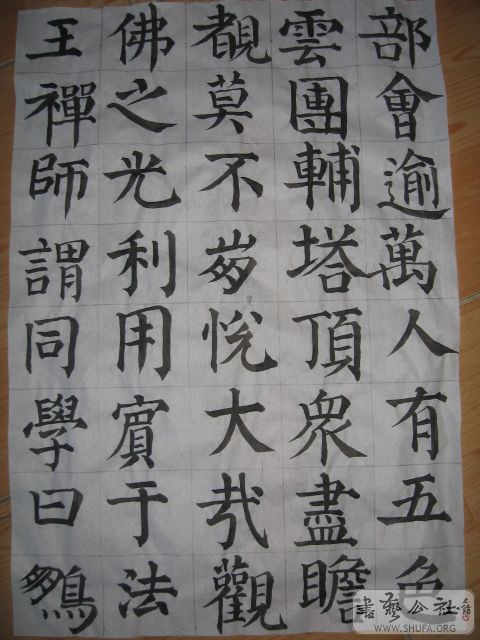 部會逾萬人有五色
雲團輔塔頂衆盡瞻
覩莫不崩悅大哉觀
佛之光利用賓于法
王禪師謂同學曰鵬
書藝公社
WWW.SHUFA.ORG